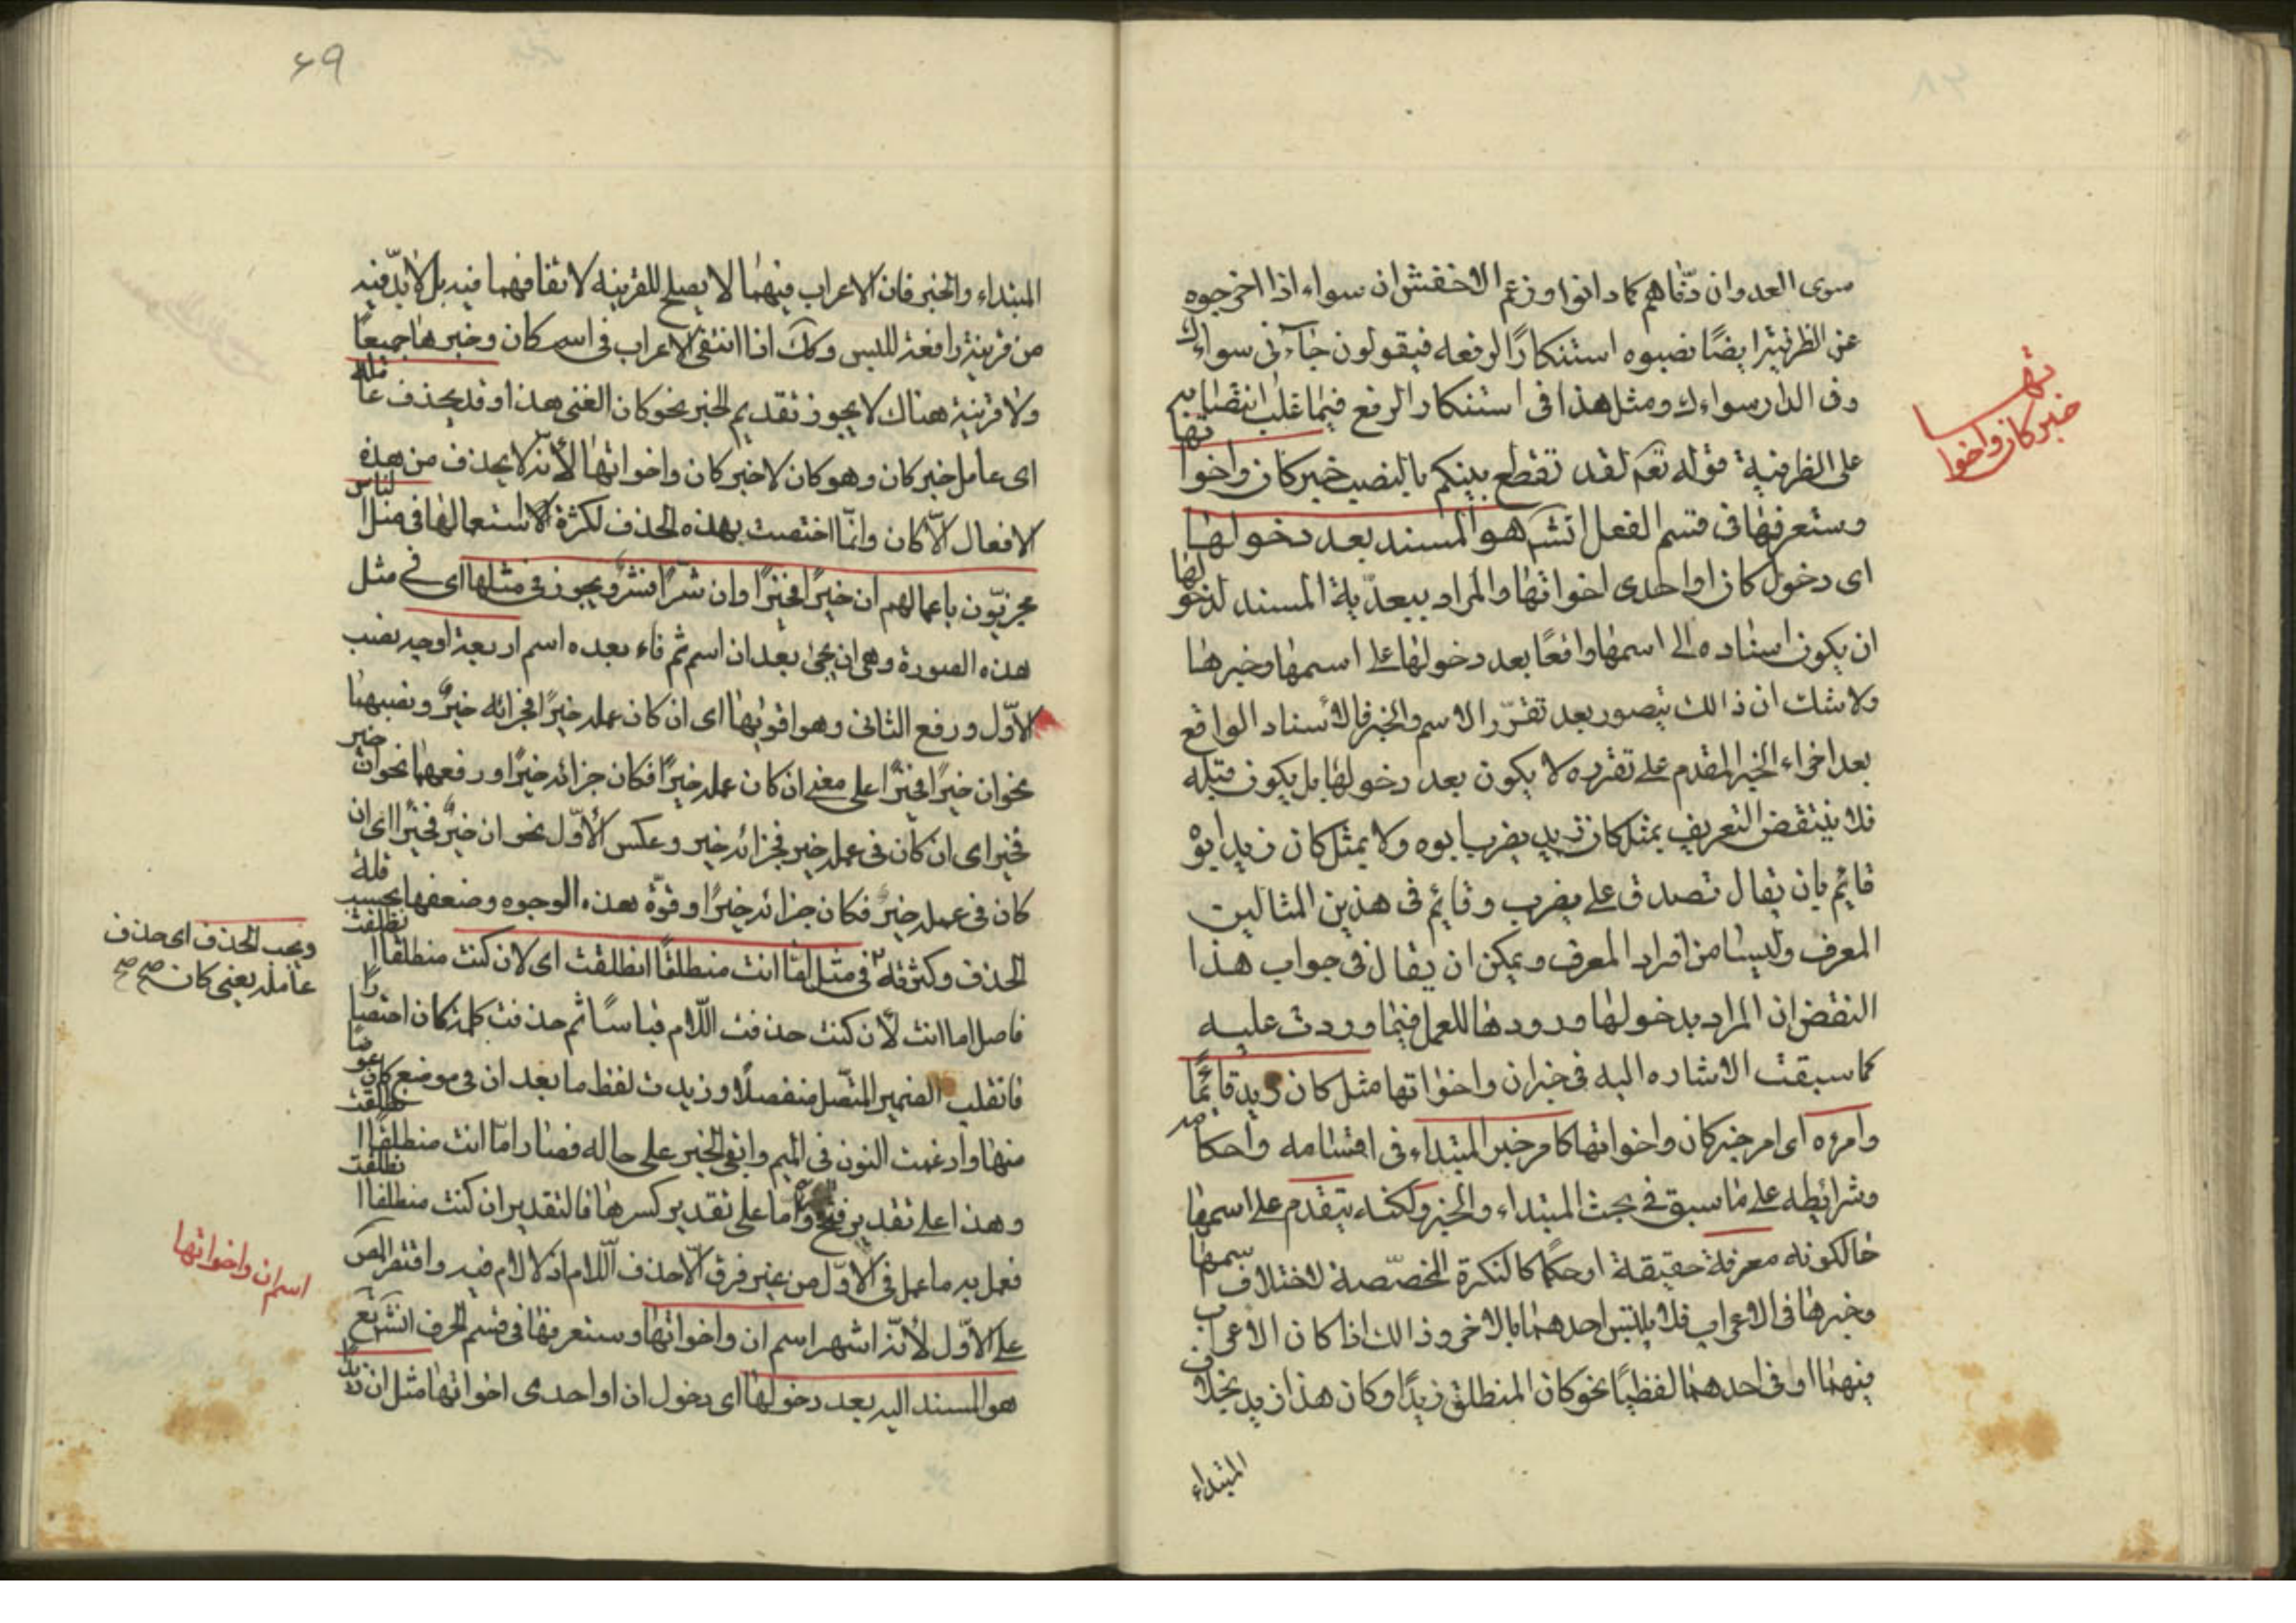 سوى العدوان دنّاهم كما دانوا وزعم الاخفش ان سواء اذا اخرجوه
عن الظرفية ايضًا نصبوه استنكارًا لرفعه فيقولون جاءنى سواءك
وفى الدار سواءك ومثل هذا فى استنكار الرفع فيما غلب انتصابه
على الظرفية قوله تعم لقد تقطع بينكم بالنصب خبر كان واخواتها
وستعرفها فى قسم الفعل انشـ هو المسند بعد دخولها
اى دخول كان او احدى اخواتها والمراد ببعديّة المسند لدخولها
ان يكون اسناده الى اسمها واقعًا بعد دخولها على اسمها وخبرها
ولا شك ان ذالك يتصور بعد تقرّر الاسم والخبر فالاسناد الواقع
بعد اجزاء الخبر المقدم على تقرره لا يكون بعد دخولها بل يكون قبله
فلا ينتقض التعريف بمثل كان زيد يضرب ابوه ولا بمثل كان زيد ابوه
قائم بان يقال تصدق على يضرب وقائم فى هذين المثالين
المعرف وليسا من افراد المعرف ويمكن ان يقال فى جواب هذا
النقض ان المراد بدخولها ورودها للعمل فيما وردت عليه
كما سبقت الاشاره اليه فى خبر ان واخواتها مثل كان زيد قائمًا
وامره اى امر خبر كان واخواتها كامر خبر المبتداء فى اقسامه واحكامه
وشرائطه على ما سبق فى بحث المبتداء والخبر ولكنه يتقدم على اسمها
حالكونه معرفة حقيقة او حكمًا كالنكرة المخصّصة لاختلاف اسمها
وخبرها فى الاعراب فلا يلتبس احدهما بالاخر وذالك اذا كان الاعراب
فيهما او فى احدهما لفظيًا نحو كان المنطلق زيدًا وكان هذا زيد بخلاف
المبتداء
خبر كان واخواتها
۶۹
المبتداء والخبر فان الاعراب فيهما لا يصلح للقرينه لاتفاقهما فيه بل لا بدّ فيه
من قرينة رافعة للبس وكك اذا انتفى الاعراب فى اسم كان وخبرها جميعًا
ولا قرينة هناك لا يجوز تقديم الخبر نحو كان الفتى هذا وقد يحذف عامله
اى عامل خبر كان وهو كان لا خبر كان واخواتها لانّه لا يحذف من هذه
الافعال الّا كان وانّما اختصت بهذه الحذف لكثرة الاستعمالها فى مثل الناس
مجزيّون باعمالهم ان خيرًا فخيرًا وان شرّا فشرّ ويجوز فى مثلها اى فى مثل
هذه الصورة وهى ان يجئ بعد ان اسم ثم فاء بعده اسم اربعة اوجه نصب
الاوّل ورفع الثانى وهو اقويها اى ان كان عمله خيرًا فجزائه خيرٌ ونصبهما
نحو ان خيرًا فخيرًا على معنى ان كان عمله خيرًا فكان جزائه خيرًا ورفعهما نحو ان خير
فخير اى ان كان فى عمله خير فجزائه خير وعكس الاوّل نحو ان خيرٌ فخيرًا اى ان
كان فى عمله خيرٌ فكان جزائه خيرًا وقوّة هذه الوجوه وضعفها بحسب قلة
الحذف وكثرته فى مثل امّا انت منطلقًا انطلقت اى لان كنت منطلقا انطلقت
فاصل اما انت لأن كنت حذفت اللّام قياسًا ثم حذفت كلمة كان اختصارًا
فانقلب الضمير المتّصل منفصلًا وزيدت لفظ ما بعد ان فى موضع كان عوضًا
منها وادغمت النون فى الميم وابقى الخبر على حاله فصار امّا انت منطلقًا انطلقت
وهذا على تقدير فتح وامّا على تقدير كسرها فالتقدير ان كنت منطلقا انطلقت
فعمل به ما عمل فى الاوّل من غير فرق الّا حذف اللّام اذ لا لام فيه واقتصر المص
على الاوّل لأنّه اشهر اسم ان واخواتها وستعرفها فى قسم الحرف انشـ تع
هو المسند اليه بعد دخولها اى دخول ان او احدى اخواتها مثل ان زيدًا
ويجب الحذف اى حذف
عامله يعنى كان صح صح
اسم ان واخواتها